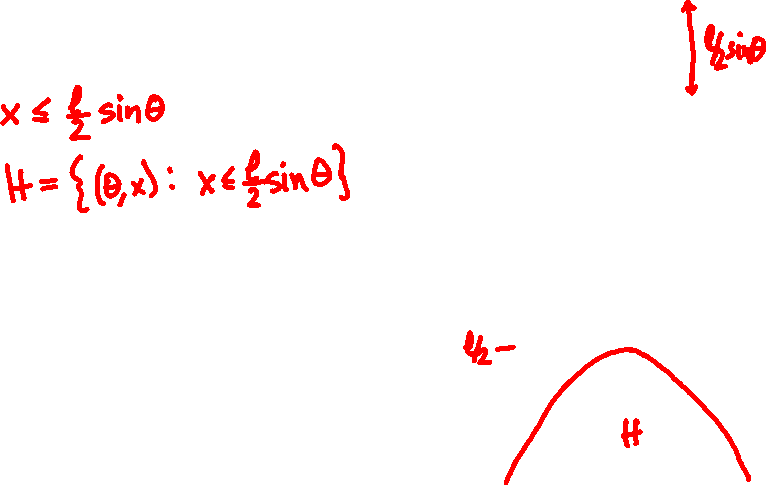 ℓ/2 sinθ
x ≤ ℓ/2 sinθ
H = {(θ,x): x ≤ ℓ/2 sinθ}
ℓ/2 –
H